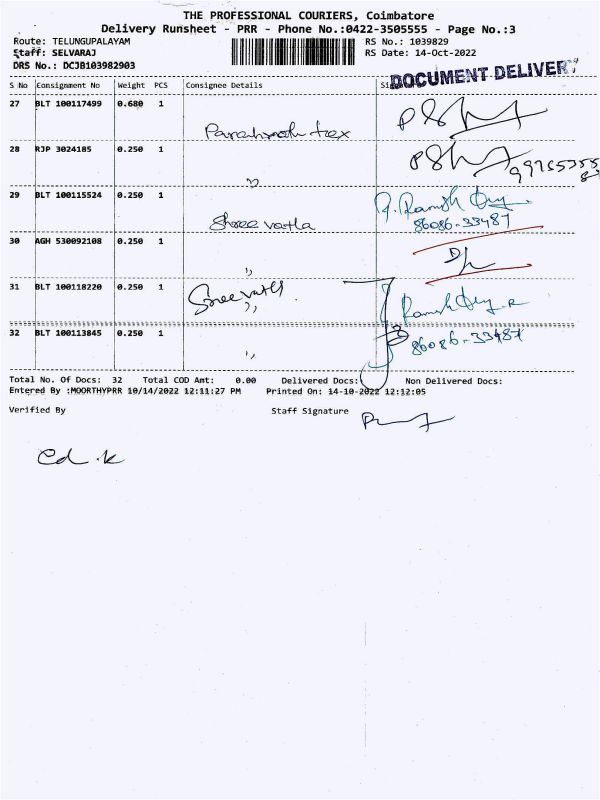 THE PROFESSIONAL COURIERS, Coimbatore
Delivery Runsheet - PRR - Phone No.:0422-3505555 - Page No.:3
Route: TELUNGUPALAYAM RS No.: 1039829
Staff: SELVARAJ RS Date: 14-Oct-2022
DRS No.: DCJB103982903
DOCUMENT DELIVERY
S No Consignment No Weight PCS Consignee Details
27 BLT 100117499 0.680 1
28 RJP 3024185 0.250 1
29 BLT 100115524 0.250 1 Shree vatla
86086-33487
30 AGH 530092108 0.250 1
31 BLT 100118220 0.250 1
32 BLT 100113845 0.250 1 86086-33487
Total No. Of Docs: 32 Total COD Amt: 0.00 Delivered Docs: Non Delivered Docs:
Entered By :MOORTHYPRR 10/14/2022 12:11:27 PM Printed On: 14-10-2022 12:12:05
Verified By Staff Signature